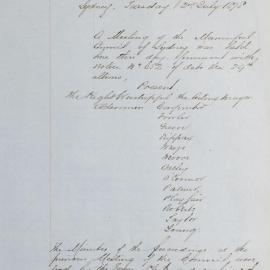 Sydney. Tuesday 2nd July 1878
A Meeting of the Municipal
Council of Sydney was held
on this day pursuant with
notice No of date the 29th
ultimo.
Present.
The Right Worshipful the Mayor
Aldermen
Fowler
Green
Kippax
Moore
O'Connor
Palmer
Playfair
Roberts
Taylor
Young.
The Minutes of the proceedings at the
previous Meeting of the Council, were